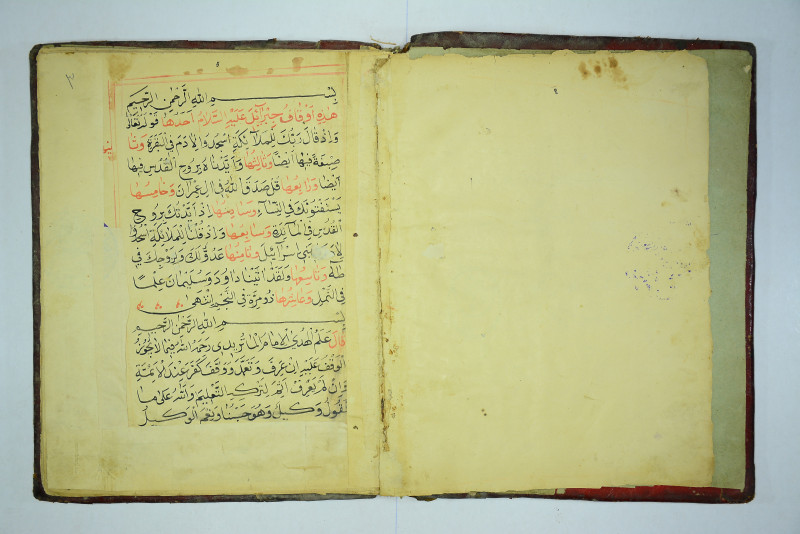 بسم الله الرحمن الرحيم
هذه أوقاف جبرائيل عليه السلام احدها قوله تعالى
واذ قال ربك للملائكة اسجدوا لادم في البقرة وثا
فيها أيضا وثالثها وايدناه بروح القدس فيها
أيضا ورابعها قل صدق الله في ال عمران وخامسها
يستفتونك في النساء وسادسها إذ أيدتك بروح
القدس في المائدة وسابعها واذ قلنا للملائكة اسجدوا
بني اسرائيل وثامنها عدو لك ولزوجك في
طه وتاسعها ولقد اتينا داود وسليمان علما
في النمل وعاشرها ذو مرة في النجم انتهى
بسم الله الرحمن الرحيم
قال علم الهدى الامام الماتريدي رحمه الله فيما لا يجوز
الوقف عليه ان عرف وتعمد ووقف كفر عند الائمة
وان لم يعرف اثم لتركه التعليم والله على ما
نقول وكيل وهو حسبنا ونعم الوكيل